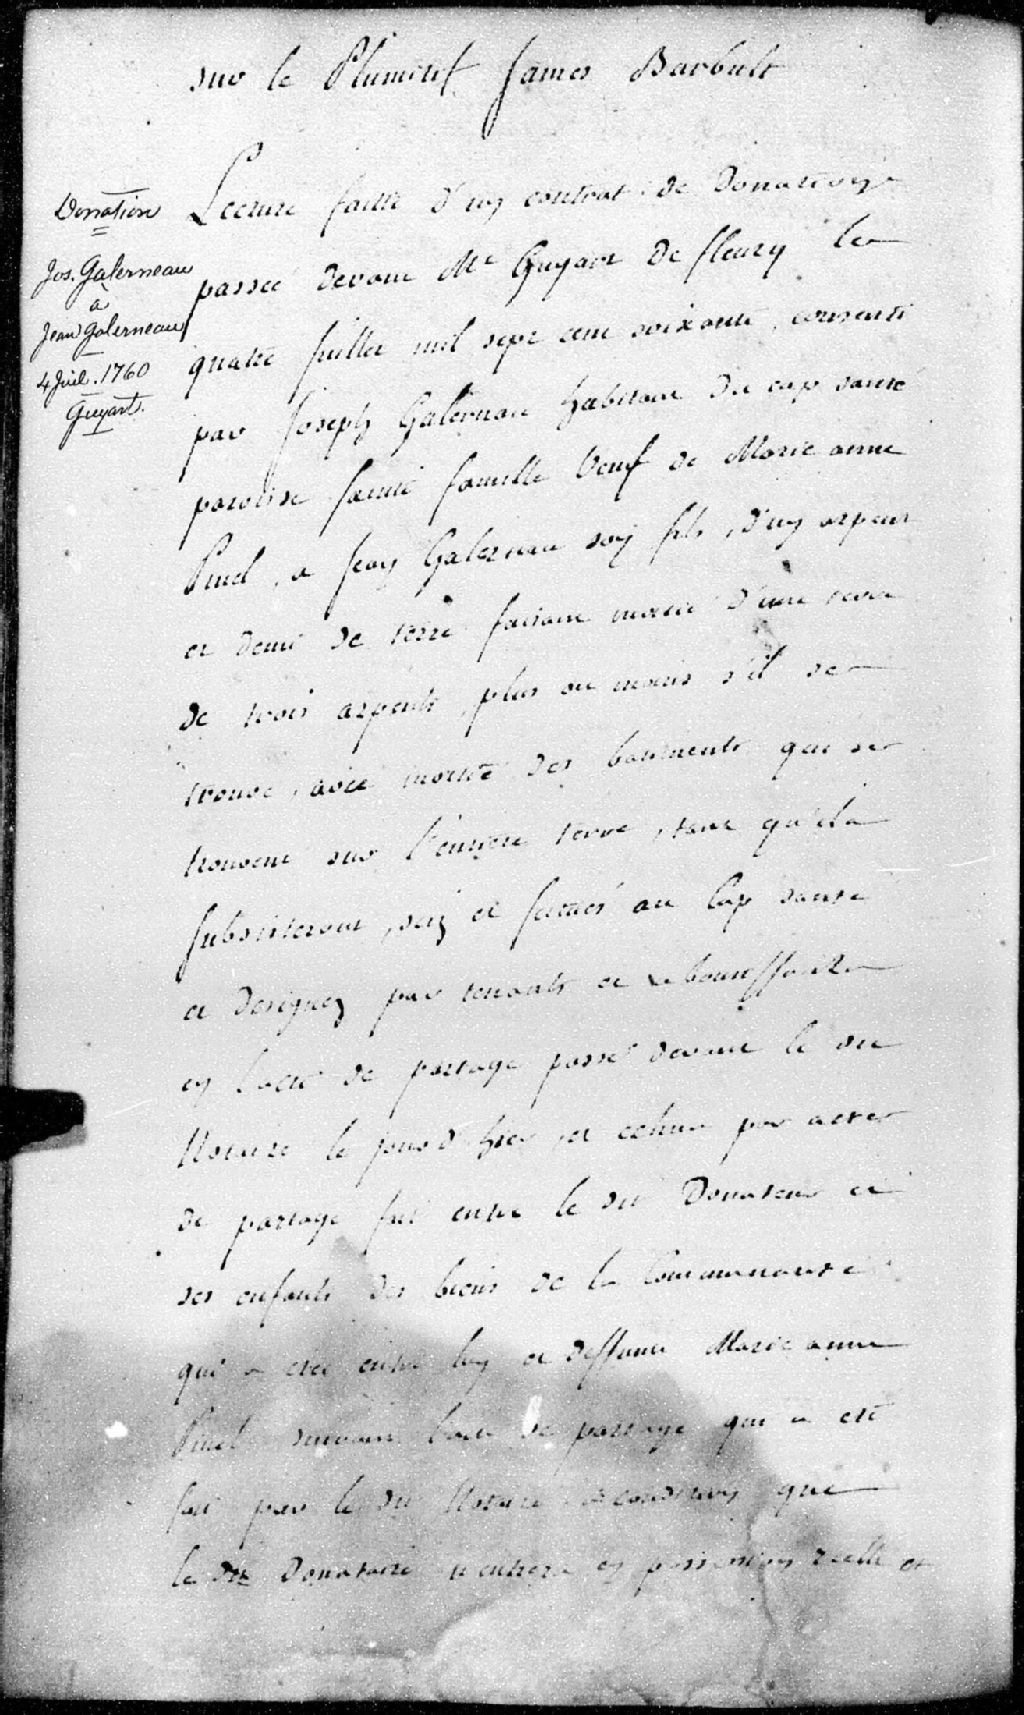 sur le Plumitif James Barbult
Donation
Jos. Galerneau
a
Jean Galerneau
4 Juil. 1760
Guyart.
Lecture faitte d'un contrat de Donation
passée devant Me Guyart De fleury le
quatre juillet mil sept cent soixante, consenti
par Joseph Galernau habitant du cap santé
paroisse sainte famille Veuf de Marie anne
Pinel, a Jean Galernau son fils, d'un arpent
et demi de terre faisant moitié d'une terre
de trois arpents, plus ou moins s'il se
trouve, avec moitié des batiments qui se
trouvent sur l'entiere terre, tant qu'ils
subsisteront, seiz et scituées au Cap santé
et designez par tenants et
en l'acte de partage passé devant le dit
Notaire le jour d'hier, et echue par acte
de partage fait entre le dit Donateur et
ses enfants des biens de la Communauté
qui a eté entre luy et deffunte Marie anne
Pinel suivant l'acte de partage qui a eté
fait par le dit Notaire a condition que
le dit Donataire n'entrera en possession reelle et